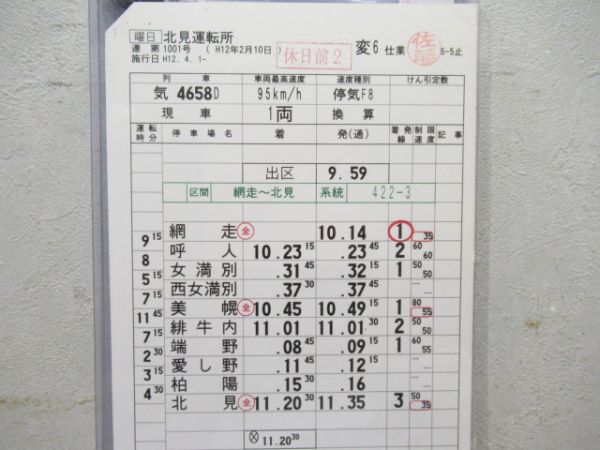 曜日 北見運転所
達 第 1001号 ( H12年2月10日 ) 休日前2 変6 仕業 佐藤 5-5止
施行日 H12. 4. 1-
列 車 車両最高速度 速度種別 けん引定数
気 4658D 95km/h 停気F8
現 車 1両 換 算
運転時分 停 車 場 名 着 発(通) 着発線 制限速度 記 事
出区 9.59
区間 網走〜北見 系統 422-3
網 走 全 10.14 1 35
9 15
呼 人 10.23 15 .23 45 2 60 60
8
女満別 .31 45 .32 15 1 50 50
5 15
西女満別 .37 30 .37 45
7 15
美 幌 全 10.45 10.49 15 1 80 55
11 45
緋牛内 11.01 11.01 30 2 50 50
7 15
端 野 .08 45 .09 15 1 60 55
2 30
愛し野 .11 45 .12 15
3 15
柏 陽 .15 30 .16
4 30
北 見 全 11.20 30 11.35 3 50 35
11.20 30